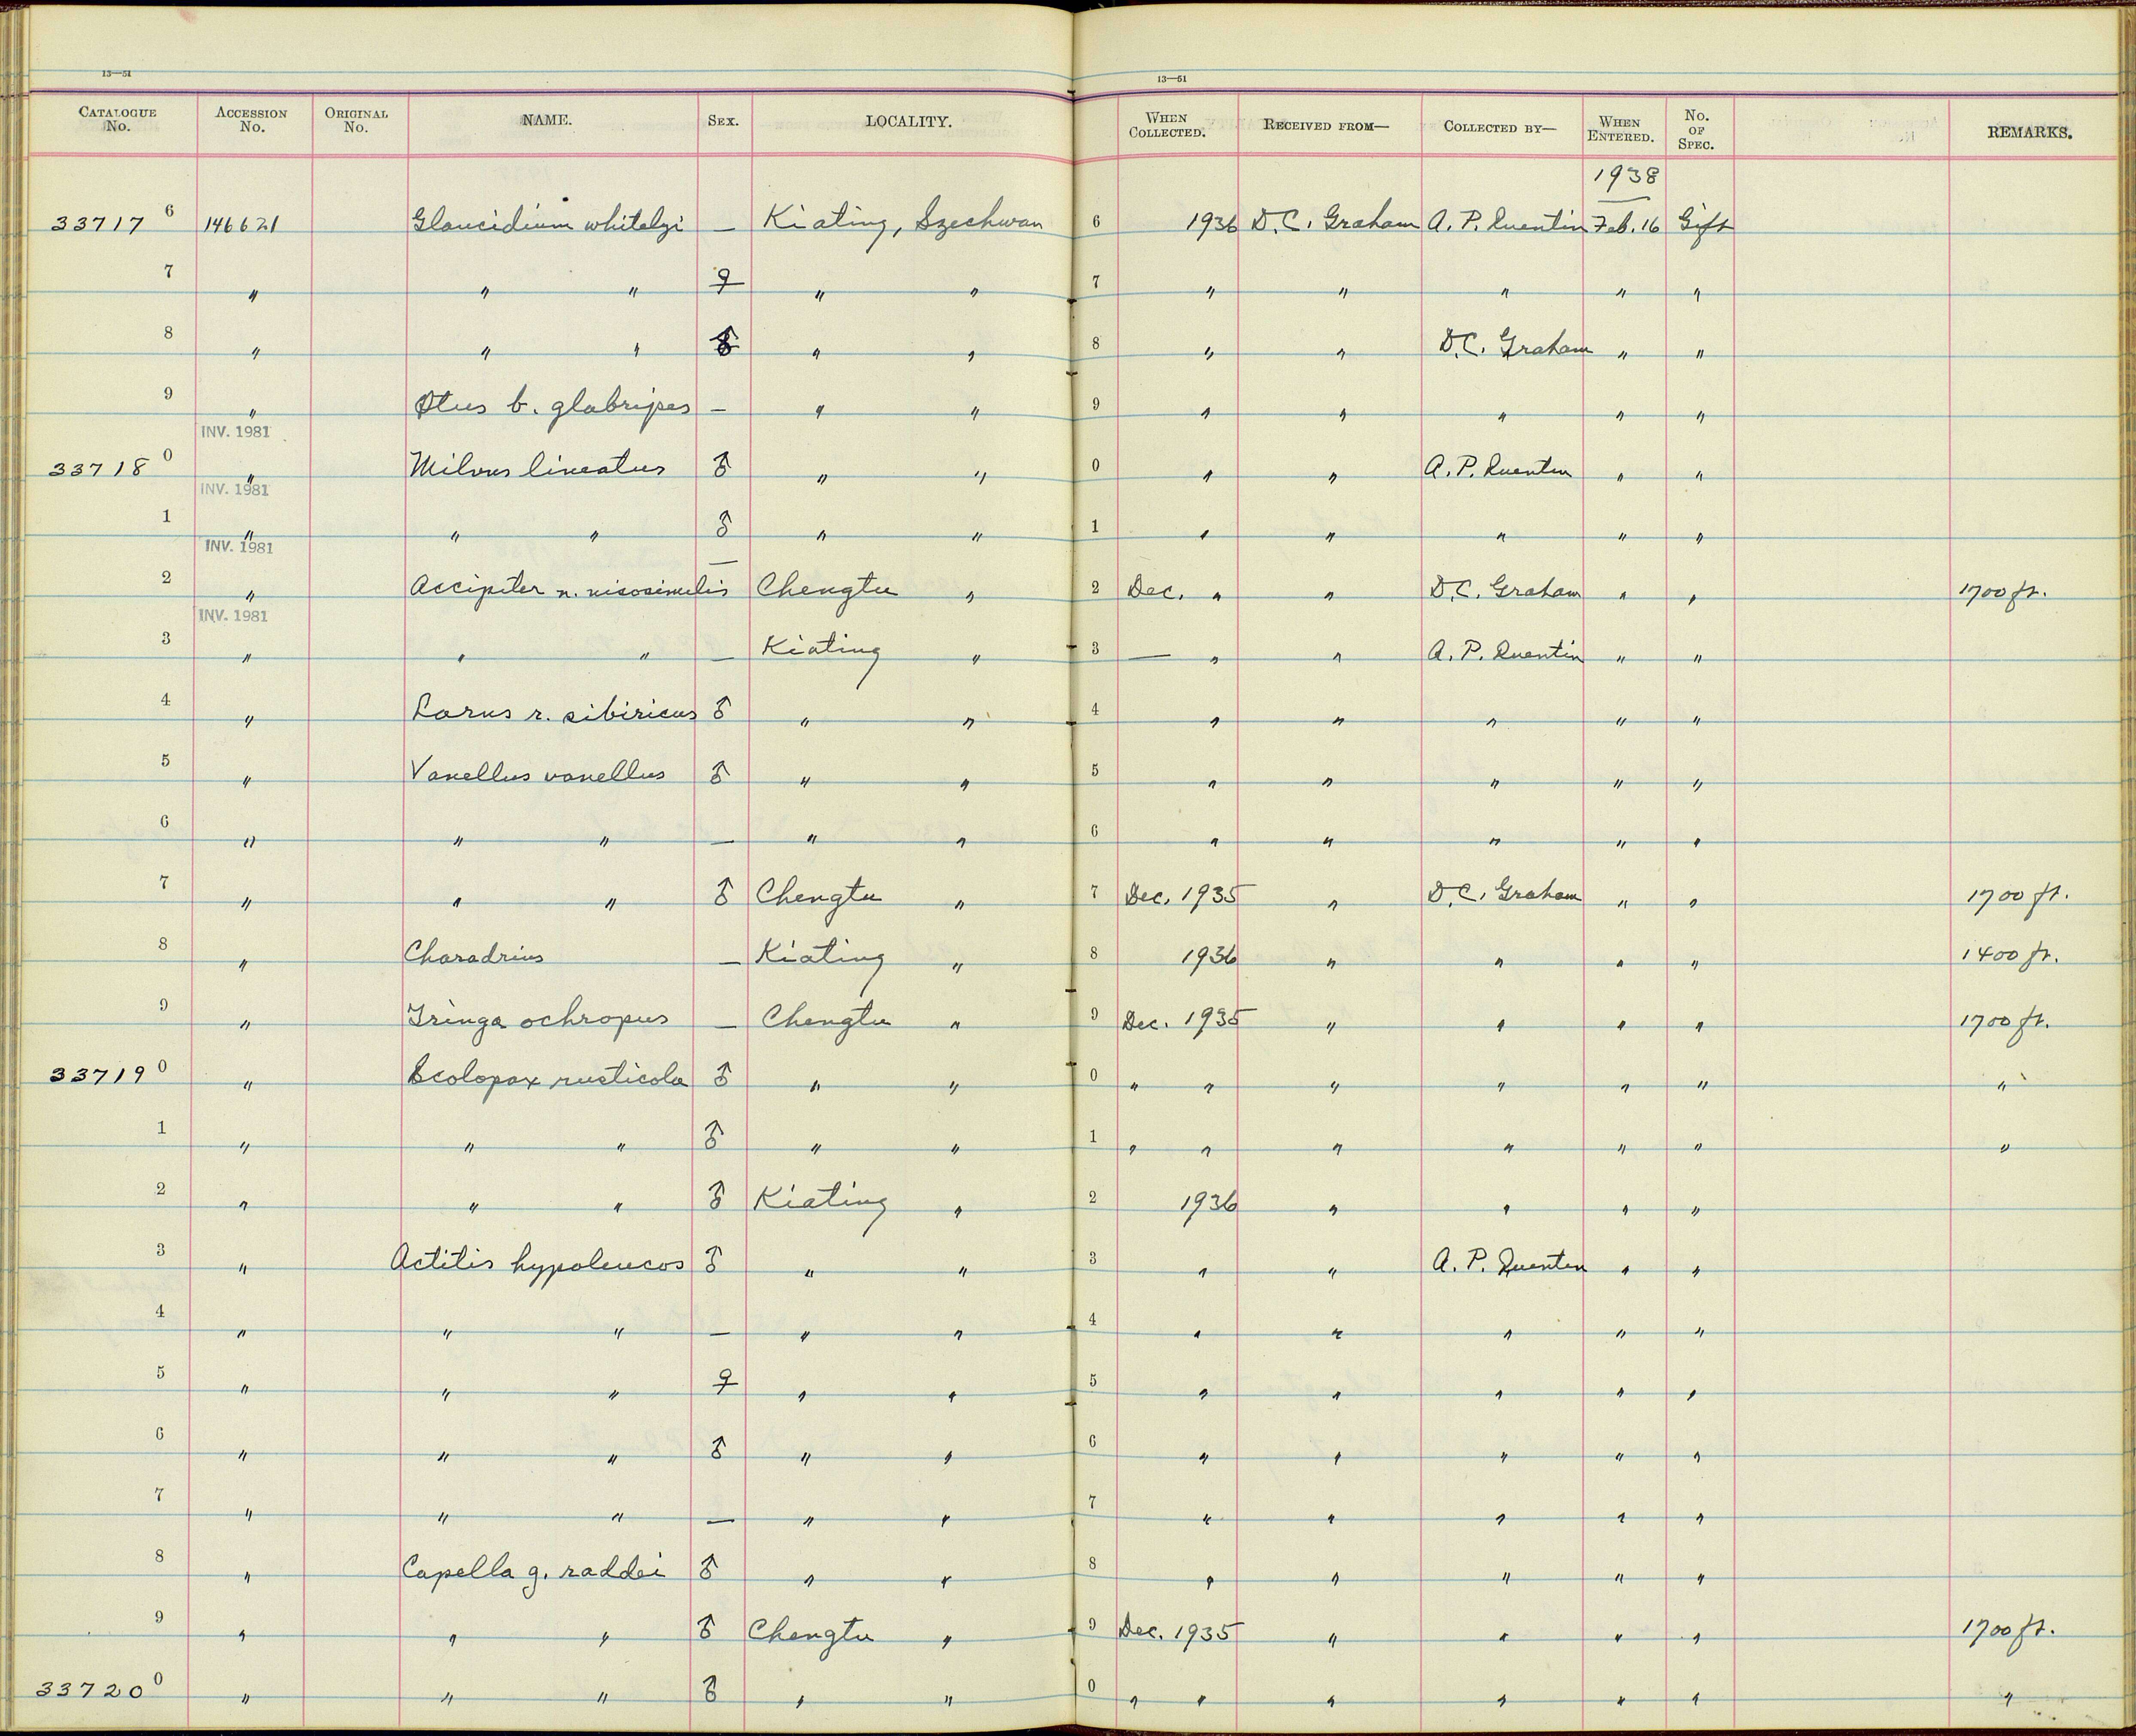 13—51
13—51
CATALOGUE No. ACCESSION No. ORIGINAL No. NAME. SEX. LOCALITY. WHEN COLLECTED. RECEIVED FROM— COLLECTED BY— WHEN ENTERED. No. OF SPEC. REMARKS.
1938
33717 6 146621 Glaucidium whitelyi — Kiating, Szechwan 6 1936 D. C. Graham A. P. Quentin Feb. 16 Gift
7 " " " ♀ " " 7 " " " " "
8 " " " ♂ " " 8 " " D. C. Graham " "
9 " Otus b. glabripes — " " 9 " " " " "
INV. 1981
33718 0 " Milvus lineatus ♂ " " 0 " " A. P. Quentin " "
INV. 1981
1 " " " ♂ " " 1 " " " " "
INV. 1981
2 " Accipiter n. nisosimilis — Chengtu " 2 Dec. " " D. C. Graham " " 1700 ft.
INV. 1981
3 " " " — Kiating " 3 — " " A. P. Quentin " "
4 " Larus r. sibiricus ♂ " " 4 " " " " "
5 " Vanellus vanellus ♂ " " 5 " " " " "
6 " " " — " " 6 " " " " "
7 " " " ♂ Chengtu " 7 Dec. 1935 " D. C. Graham " " 1700 ft.
8 " Charadrius — Kiating " 8 1936 " " " " 1400 ft.
9 " Tringa ochropus — Chengtu " 9 Dec. 1935 " " " " 1700 ft.
33719 0 " Scolopax rusticola ♂ " " 0 " " " " " " "
1 " " " ♂ " " 1 " " " " " " "
2 " " " ♂ Kiating " 2 1936 " " " "
3 " Actitis hypoleucos ♂ " " 3 " " A. P. Quentin " "
4 " " " — " " 4 " " " " "
5 " " " ♀ " " 5 " " " " "
6 " " " ♂ " " 6 " " " " "
7 " " " — " " 7 " " " " "
8 " Capella g. raddei ♂ " " 8 " " " " "
9 " " " ♂ Chengtu " 9 Dec. 1935 " " " " 1700 ft.
33720 0 " " " ♂ " " 0 " " " " " " "